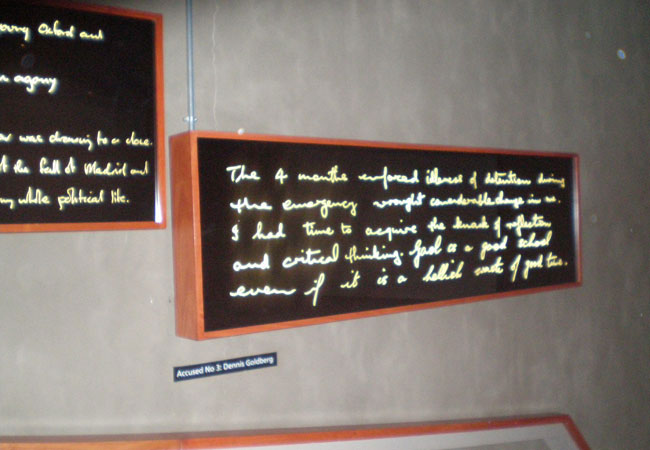 Oxford and
agony
was drawing to a close.
the fall of Madrid and
white political life.
The 4 months enforced of detention during
the emergency wrought considerable change in me.
I had time to acquire the knack of reflection
and critical thinking. Gaol is a good school
even if it is a hellish waste of good time.
Accused No 3: Dennis Goldberg